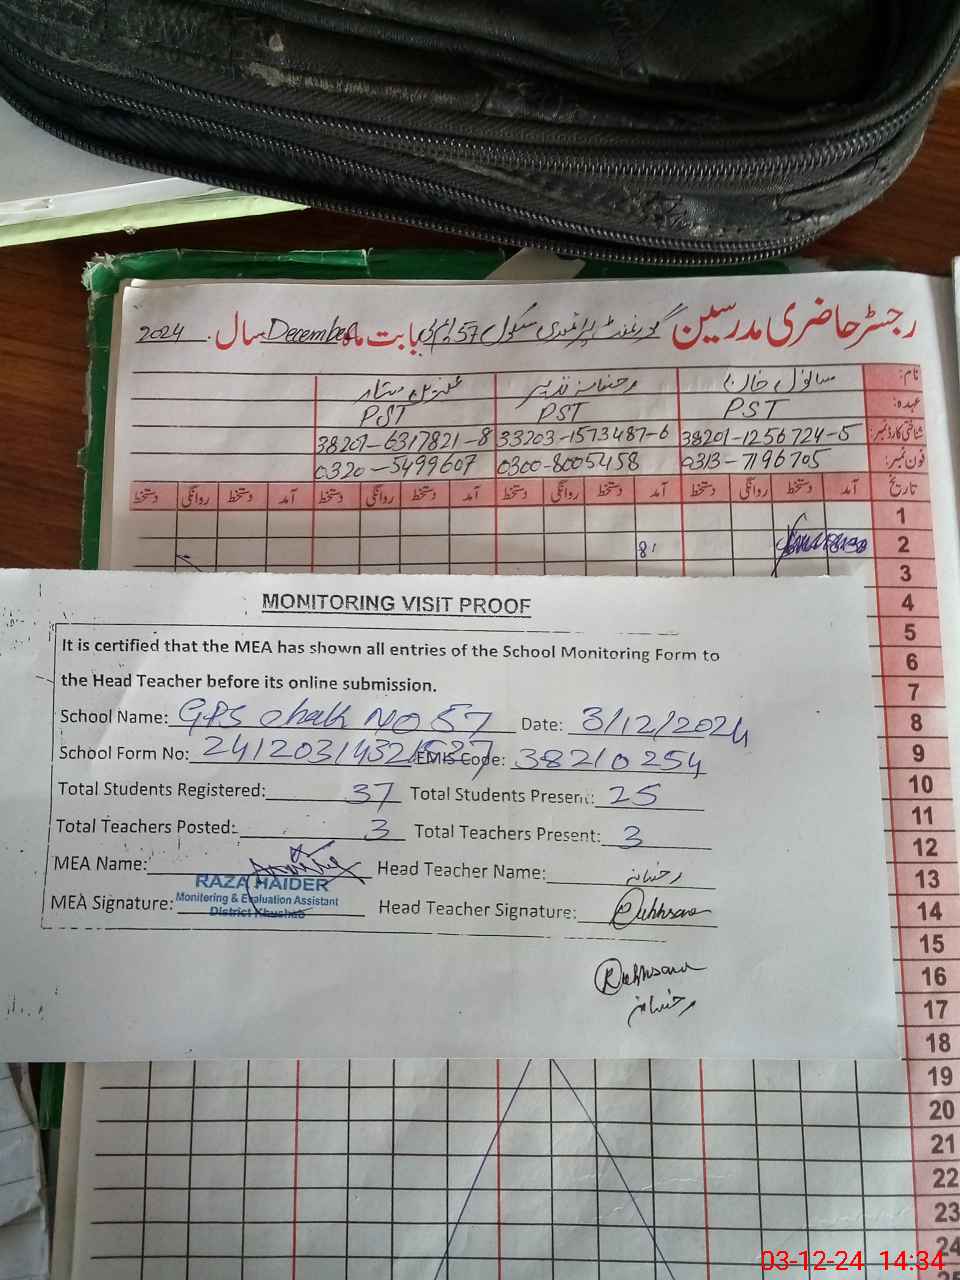 رجسٹر حاضری مدرسین گورنمنٹ پرائمری سکول 57 ایم بی بابت ماہ December سال 2024
نام:
عہدہ: PST PST PST
شناختی کارڈ نمبر: 38201-1256724-5 33203-1573487-6 38201-6317821-8
فون نمبر: 0313-7196705 0300-8005458 0320-5499607
تاریخ آمد دستخط روانگی دستخط آمد دستخط روانگی دستخط آمد دستخط روانگی دستخط آمد دستخط روانگی دستخط
1
2
3
4
5
6
7
8
9
10
11
12
13
14
15
16
17
18
19
20
21
22
23
24
MONITORING VISIT PROOF
It is certified that the MEA has shown all entries of the School Monitoring Form to
the Head Teacher before its online submission.
School Name: GPS Chak NO 57 Date: 3/12/2024
School Form No: EMIS Code: 38210254
Total Students Registered: 37 Total Students Present: 25
Total Teachers Posted: 3 Total Teachers Present: 3
MEA Name: Head Teacher Name: رخسانہ
RAZA HAIDER
Monitoring & Evaluation Assistant
District Khushab
MEA Signature: Head Teacher Signature: Rukhsana
Rukhsana
رخسانہ
03-12-24 14:34